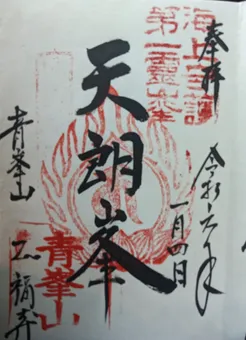 奉拝
令和六年
一月四日
海上守護
第一霊峯
天朗峯
青峯山
青峯山
正福寺